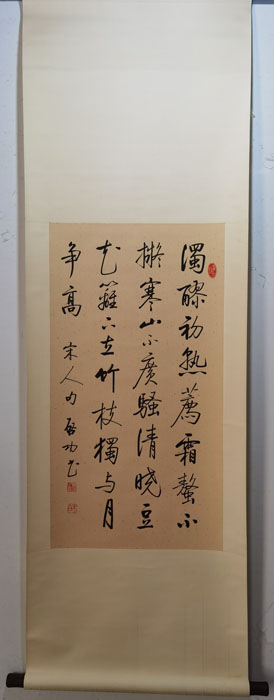 濁醪初熟薦霜螯不
擬寒山不廣騷清曉豆
花籬下立竹枝獨與月
争高 宋人句 啓功書